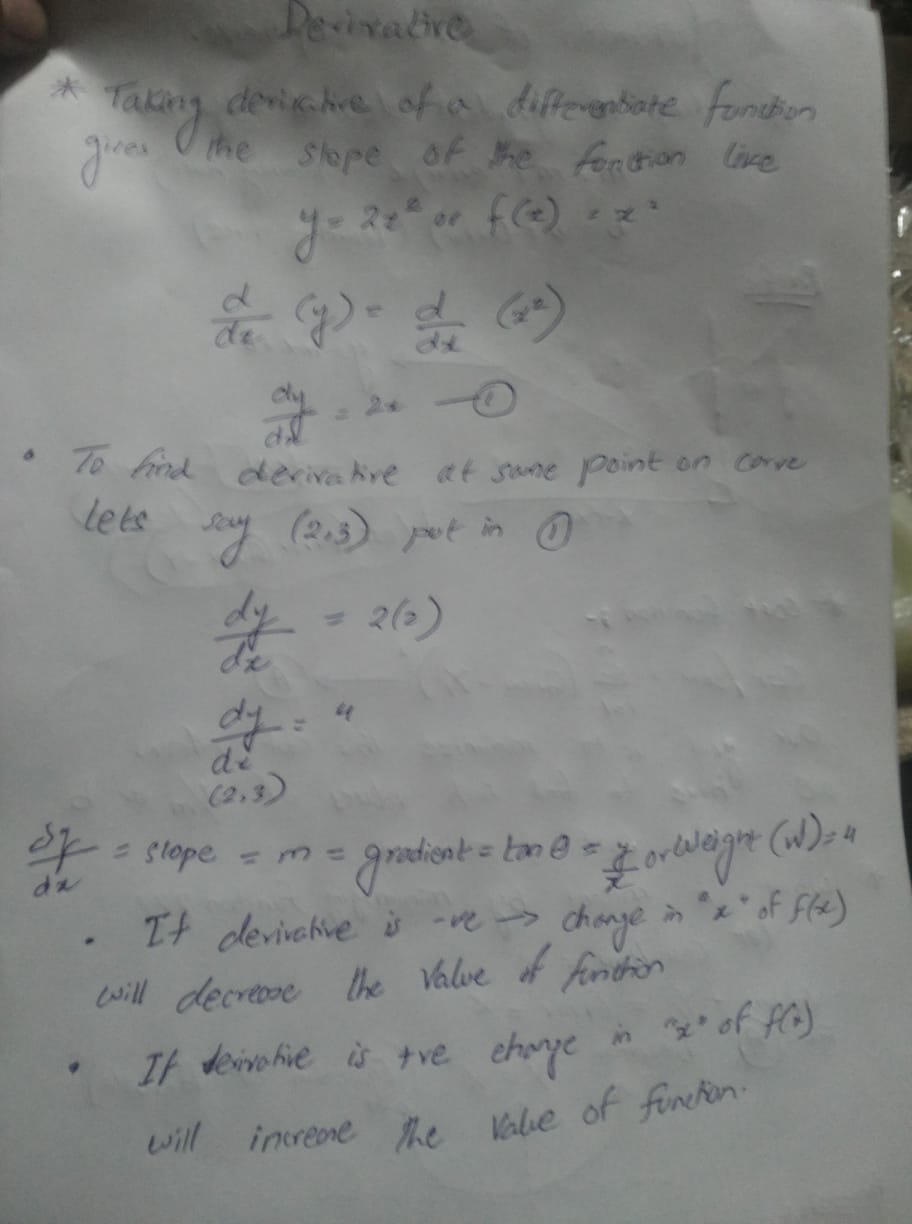 Derivative
* Taking derivative of a differentiate function
gives the slope of the function like
y = 2x² or f(x) = x²
d/dx (y) = d/dx (x²)
dy/dx = 2x — ①
• To find derivative at some point on curve
lets say (2,3) put in ①
dy/dx = 2(2)
dy/dx = 4
(2,3)
dy/dx = slope = m = gradient = tan θ = y/x or Weight (w) = 4
• If derivative is -ve → change in "x" of f(x)
will decrease the value of function
• If derivative is +ve change in "x" of f(x)
will increase the value of function.